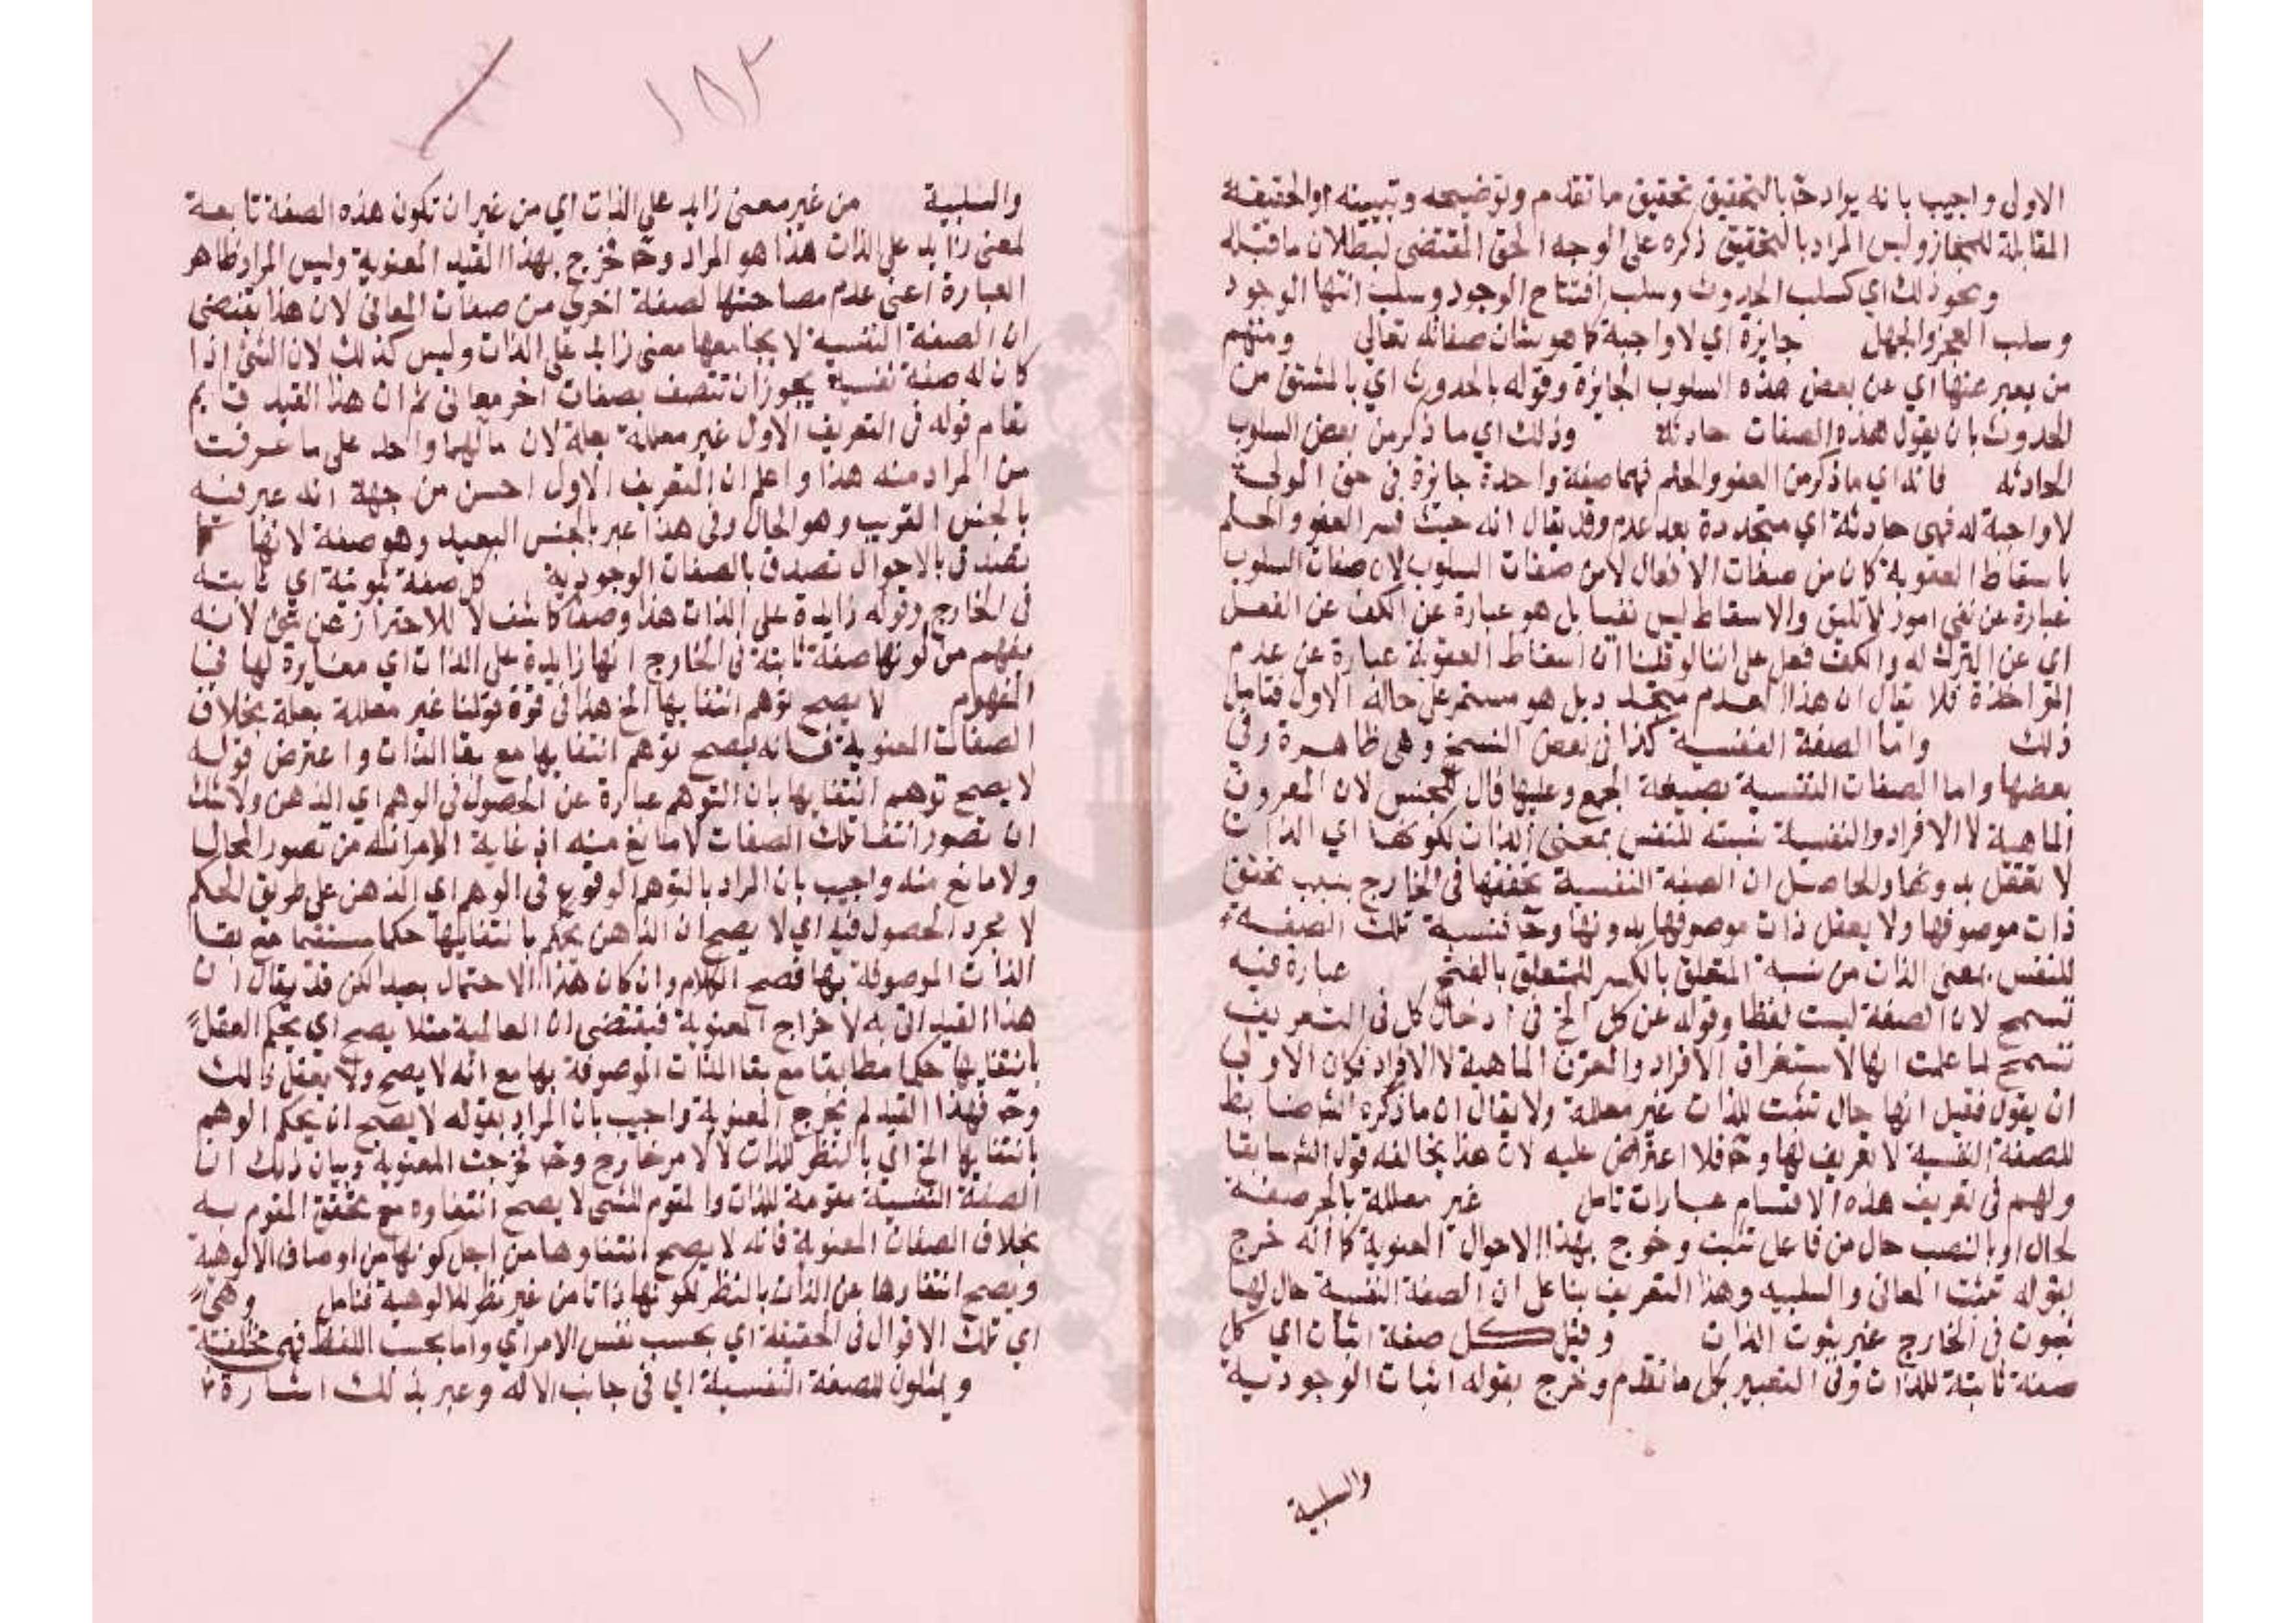 الاول واجيب بانه يراد حـ بالتحقيق تحقيق ما تقدم وتوضيحه وتبيينه والحقيقة
المقابلة للمجاز وليس المراد بالتحقيق ذكره على الوجه الحق المقتضى لبطلان ما قبله
ونحو ذلك اي كسلب الحدوث وسلب افتتاح الوجود وسلب انتها الوجود
وسلب العجز والجهل جايزة اي لا واجبة كما هو شان صفاته تعالى ومنهم
من يعبر عنها اي عن بعض هذه السلوب الجايزة وقوله بالحدوث اي بالمشتق من
الحدوث بان يقول هذه الصفات حادثة وذلك اي ما ذكر من بعض السلوب
الحادثه فانه اي ما ذكر من العفو والحلم فهما صفة واحدة جائزة في حق المولى
لا واجبة له فهي حادثة اي متجددة بعد عدم وقد يقال انه حيث فسر العفو والحلم
باسقاط العقوبة كان من صفات الافعال لا من صفات السلوب لان صفات السلوب
عبارة عن نفي امور لا تليق والاسقاط ليس نفيا بل هو عبارة عن الكف عن الفعل
اي عن الترك له والكف فعل على اننا لو قلنا ان اسقاط العقوبة عبارة عن عدم
المؤاخذة فلا يقال ان هذا العدم متجدد بل هو مستمر على حاله الاول فتامل
ذلك واما الصفة النفسية كذا في بعض النسخ وهي ظاهرة وفي
بعضها واما الصفات النفسية بصيغة الجمع وعليها فال للجنس لان المعروف
الماهية لا الافراد والنفسية نسبته للنفس بمعنى الذات لكونها اي الذات
لا تعقل بدونها والحاصل ان الصفة النفسية تحققها في الخارج بسبب تحقق
ذات موصوفها ولا يعقل ذات موصوفها بدونها وحـ فنسبة تلك الصفة
للنفس بمعنى الذات من نسبة المتعلق بالكسر للمتعلق بالفتح عبارة فيه
تسمح لان الصفة ليست لفظا وقوله عن كل الخ في ادخال كل في التعريف
تسمح لما علمت انها لاستغراق الافراد والمعرف الماهية لا الافراد فكان الاولى
ان يقول فقيل انها حال تثبت للذات غير معللة ولا يقال ان ما ذكره الش ضابط
للصفة النفسية لا تعريف لها وحـ فلا اعتراض عليه لان هذا يخالفه قول الش سابقا
ولهم في تعريف هذه الاقسام عبارات تامل غير معللة بالجر صفة
لحال او بالنصب حال من فاعل تثبت وخرج بهذا الاحوال المعنوية كما انه خرج
بقوله تثبت المعاني والسلبيه وهذا التعريف بنا على ان الصفة النفسية حال لها
ثبوت في الخارج غير ثبوت الذات وقيل كل صفة اثبات اي كل
صفة ثابتة للذات وفي التعبير بكل ما تقدم وخرج بقوله اثبات الوجودية
والسلبية
١٥٢
والسلبية من غير معنى زايد على الذات اي من غير ان تكون هذه الصفة تابعة
لمعنى زايد على الذات هذا هو المراد وحـ خرج بهذا القيد المعنوية وليس المراد ظاهر
العبارة اعني عدم مصاحبتها لصفة اخرى من صفات المعاني لان هذا يقتضي
ان الصفة النفسية لا يجامعها معنى زايد على الذات وليس كذلك لان الشئ اذا
كان له صفة نفسية يجوز ان تتصف بصفات اخر معاني ثم ان هذا القيد قايم
مقام قوله في التعريف الاول غير معللة بعلة لان مآلهما واحد على ما عرفت
من المراد منه هذا واعلم ان التعريف الاول احسن من جهة انه عبر فيه
بالجنس القريب وهو الحال وفي هذا عبر بالجنس البعيد وهو صفة لانها كما
تصدق بالاحوال تصدق بالصفات الوجودية كل صفة ثبوتية اي ثابتة
في الخارج وقوله زايدة على الذات هذا وصف كاشف لا للاحتراز عن شئ لانه
يفهم من كونها صفة ثابتة في الخارج انها زايدة على الذات اي مغايرة لها في
المفهوم لا يصح توهم انتفايها الخ هذا في قوة قولنا غير معللة بعلة بخلاف
الصفات المعنوية فانه يصح توهم انتفايها مع بقا الذات واعترض قوله
لا يصح توهم انتفايها بان التوهم عبارة عن الحصول في الوهم اي الذهن ولا شك
ان تصور انتفا تلك الصفات لا مانع منه اذ غاية الامر انه من تصور المحال
ولا مانع منه واجيب بان المراد بالتوهم الوقوع في الوهم اي الذهن على طريق الحكم
لا مجرد الحصول فيه اي لا يصح ان الذهن يحكم بانتفايها حكما مستقيما مع بقا
الذات الموصوفة بها فصح الكلام وان كان هذا الاحتمال بعيد الكن قد يقال ان
هذا القيد اتى به لاخراج المعنوية فيقتضي ان العالمية مثلا يصح اي يحكم العقل
بانتفايها حكما مطابقا مع بقا الذات الموصوفة بها مع انه لا يصح ولا يعقل ذلك
وحـ فهذا القيد لم يخرج المعنوية واجيب بان المراد بقوله لا يصح ان يحكم الوهم
بانتفايها الخ اي بالنظر للذات لا لامر خارج وحـ خرجت المعنوية وبيان ذلك ان
الصفة النفسية مقومة للذات والمقوم للشي لا يصح انتفاوه مع تحقق المقوم به
بخلاف الصفات المعنوية فانه لا يصح انتفاوها من اجل كونها من اوصاف الالوهية
ويصح انتفاءها عن الذات بالنظر لكونها ذاتا من غير نظر للالوهية فتامل وهي
اي تلك الاقوال في الحقيقة اي بحسب نفس الامر اي واما بحسب اللفظ فهي مختلفة
ويمثلون للصفة النفسية اي في جانب الاله وعبر بذلك اشارة